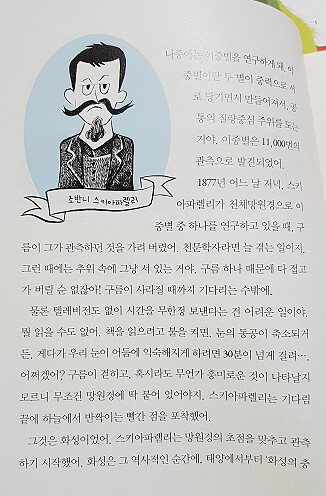 나중에는 이중별을 연구하게 돼. 이
중별이란 두 별이 중력으로 서
로 당기면서 만들어져서, 공
통의 질량중심 주위를 도는
거야. 이중별은 11,000번의
관측으로 발견되었어.
조반니 스키아파렐리
1877년 어느 날 저녁, 스키
아파렐리가 천체망원경으로 이
중별 중 하나를 연구하고 있을 때, 구
름이 그가 관측하던 것을 가려 버렸어. 천문학자라면 늘 겪는 일이지.
그런 때에는 추위 속에 그냥 서 있는 거야. 구름 하나 때문에 다 접고
가 버릴 순 없잖아! 구름이 사라질 때까지 기다리는 수밖에.
물론 텔레비전도 없이 시간을 무한정 보낸다는 건 어려운 일이야.
뭘 읽을 수도 없어. 책을 읽으려고 불을 켜면, 눈의 동공이 축소되거
든. 게다가 우리 눈이 어둠에 익숙해지게 하려면 30분이 넘게 걸려….
어쩌겠어? 구름이 걷히고, 혹시라도 무언가 흥미로운 것이 나타날지
모르니 무조건 망원경에 딱 붙어 있어야지. 스키아파렐리는 기다림
끝에 하늘에서 반짝이는 빨간 점을 포착했어.
그것은 화성이었어. 스키아파렐리는 망원경의 초점을 맞추고 관측
하기 시작했어. 화성은 그 역사적인 순간에, 태양에서부터 '화성의 충